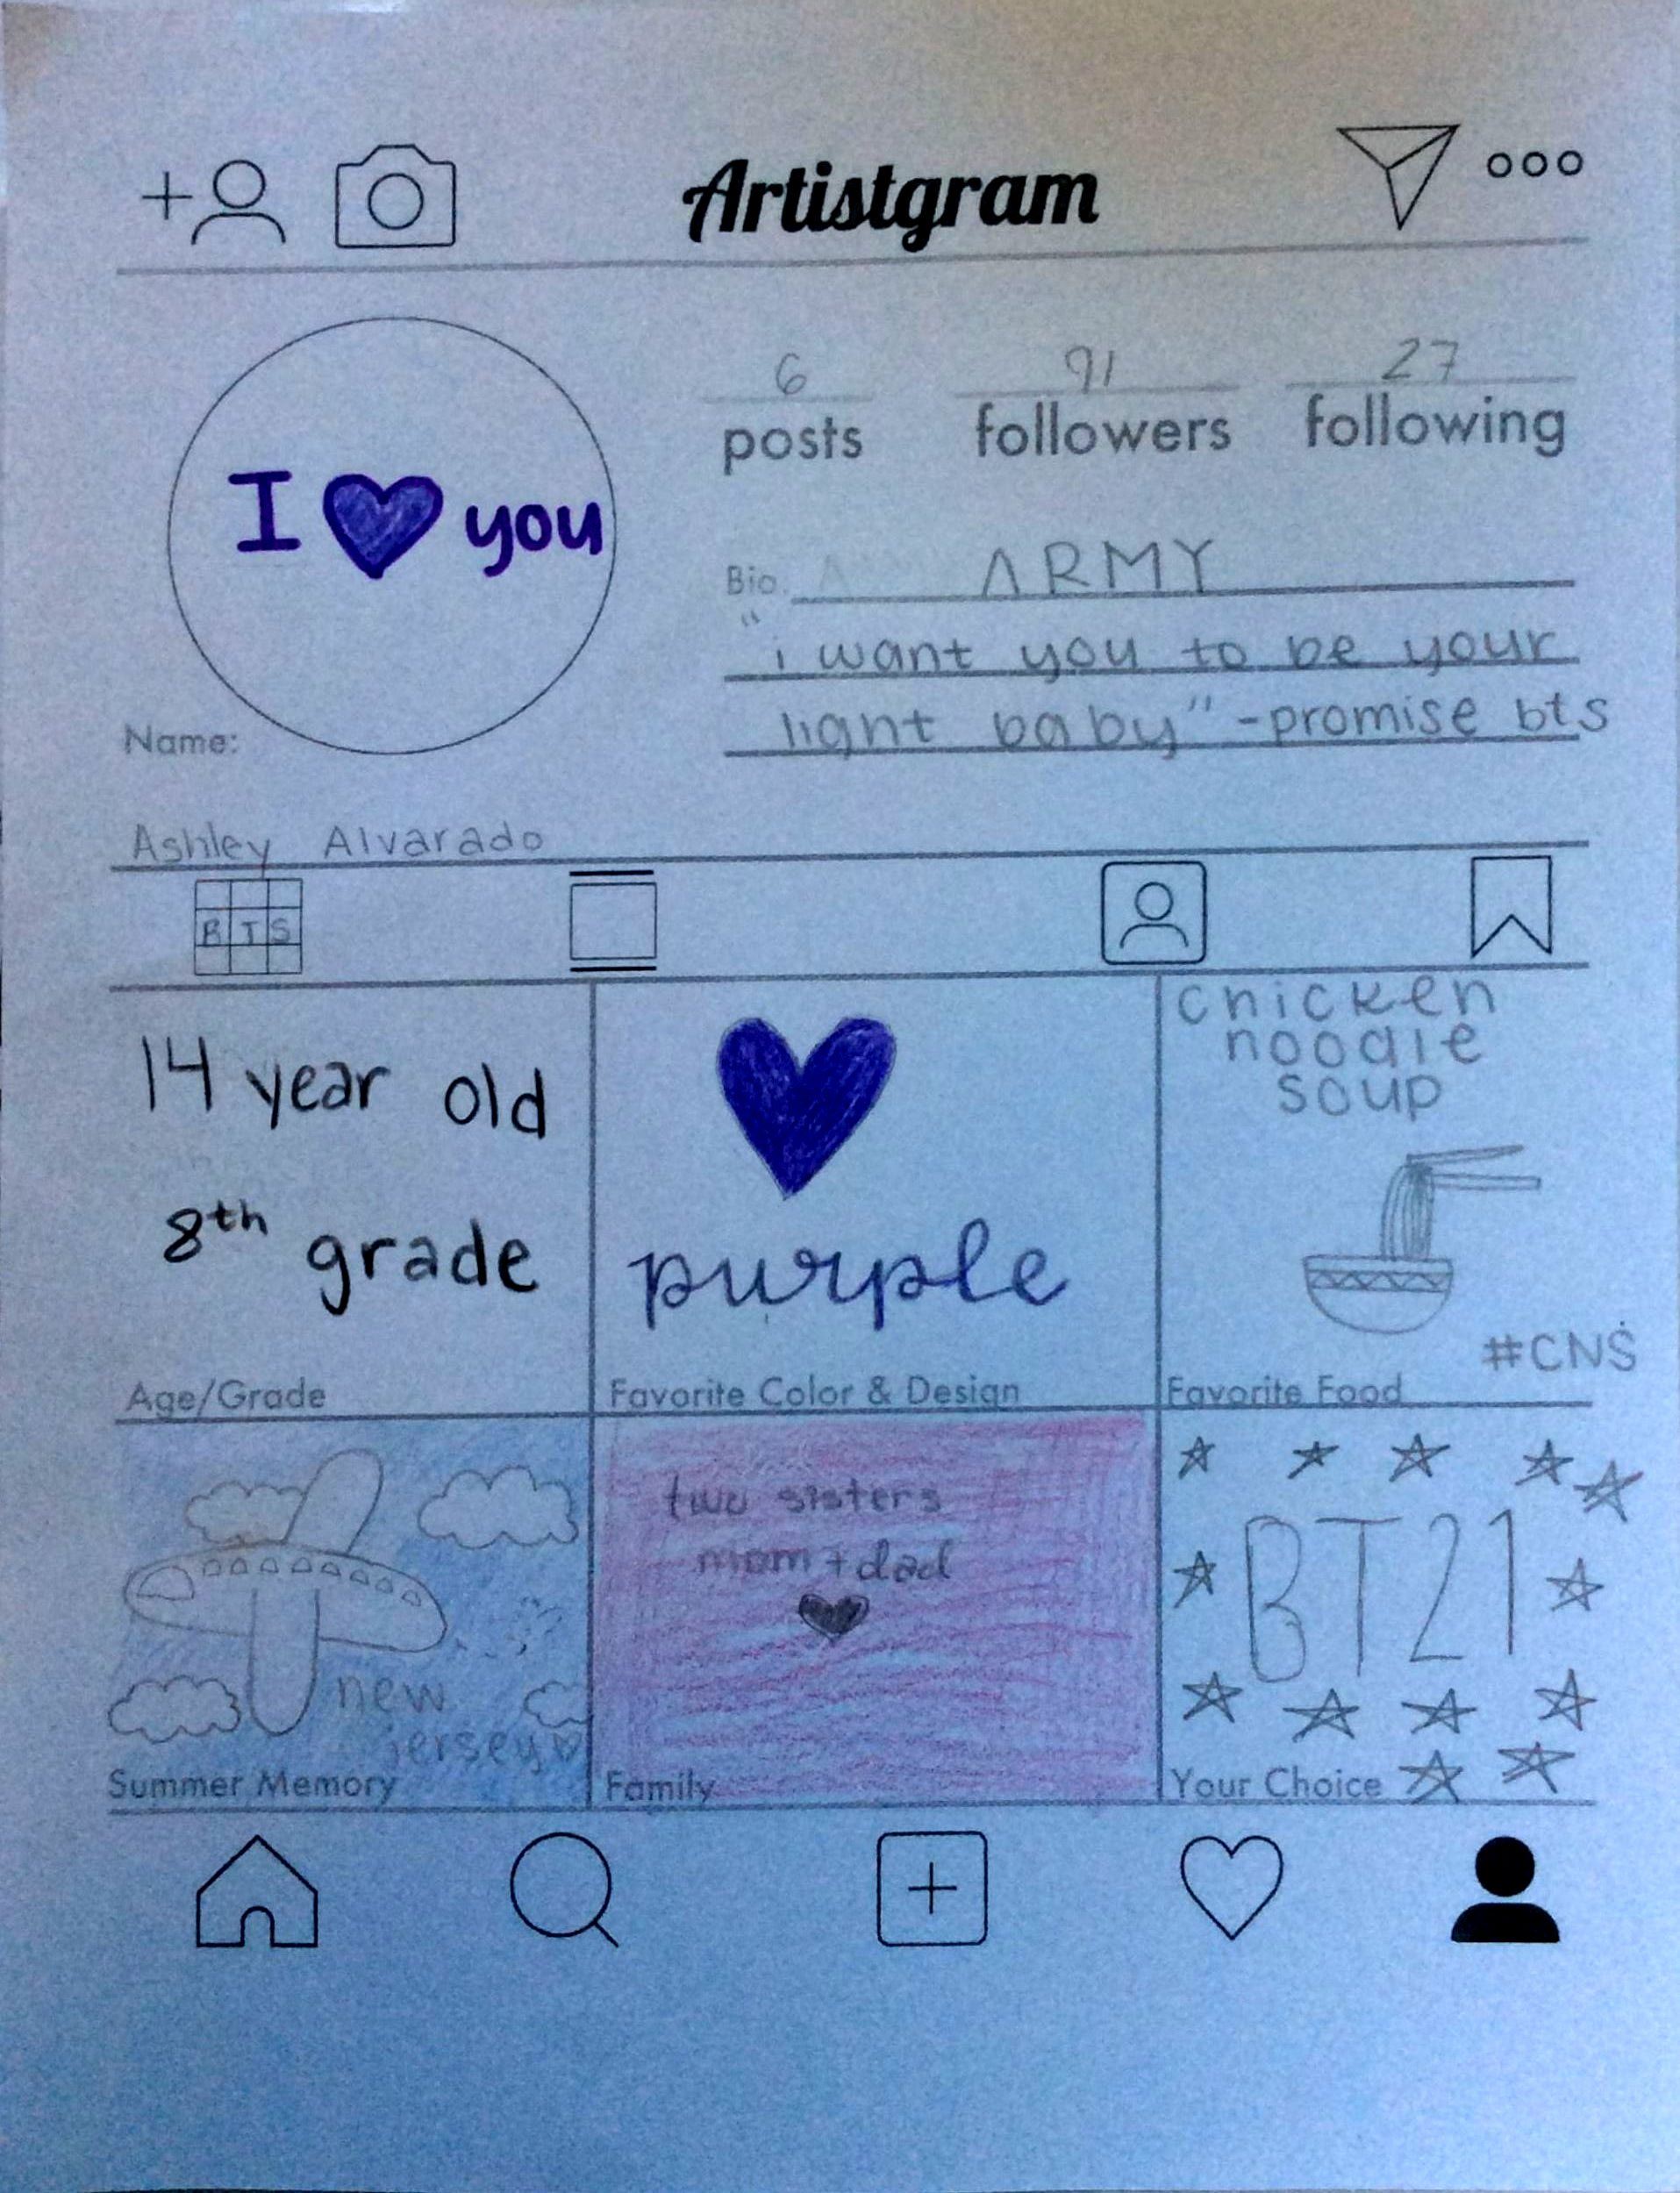 Artistgram
6 91 27
posts followers following
I you
Bio. ARMY
"i want you to be your
light baby" -promise bts
Name:
Ashley Alvarado
BTS
14 year old
8th grade
Age/Grade
purple
Favorite Color & Design
chicken
noodle
soup
#CNS
Favorite Food
new
jersey
Summer Memory
two sisters
mom + dad
Family
BT21
Your Choice